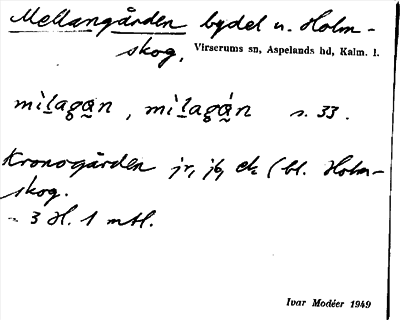 Mellangården bydel u. Holm-
skog, Virserums sn, Aspelands hd, Kalm. l.
mìlagan, mìlagán s. 33.
Kronogården jr, jb, ek (bl. Holm-
skog.
3 H. 1 mtl.
Ivar Modéer 1949